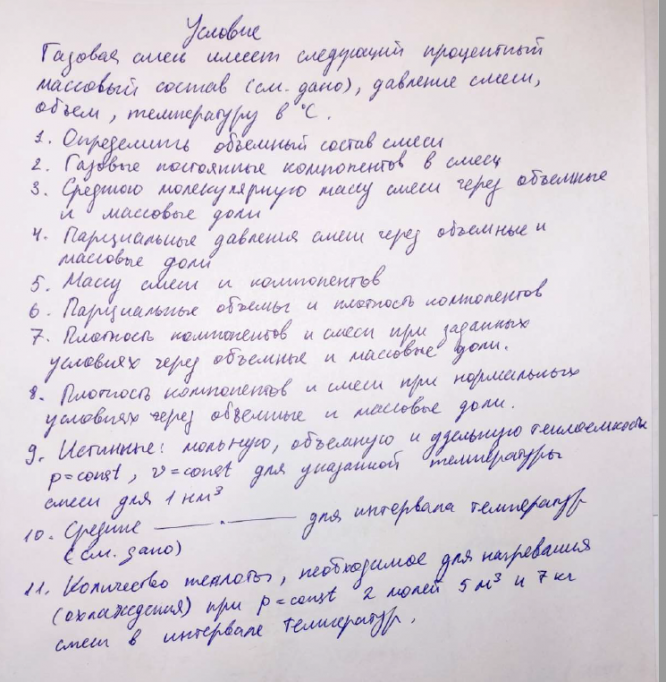 Условие
Газовая смесь имеет следующий процентный
массовый состав (см. дано), давление смеси,
объем, температуру в °C.
1. Определить объемный состав смеси
2. Газовые постоянные компонентов в смеси
3. Среднюю молекулярную массу смеси через объемные
и массовые доли
4. Парциальные давления смеси через объемные и
массовые доли
5. Массу смеси и компонентов
6. Парциальные объемы и плотность компонентов
7. Плотность компонентов и смеси при заданных
условиях через объемные и массовые доли.
8. Плотность компонентов и смеси при нормальных
условиях через объемные и массовые доли.
9. Истинные: мольную, объемную и удельную теплоемкость
p=const, v=const для указанной температуры
смеси для 1 нм³
10. Средние —— · —— для интервала температур
(см. дано)
11. Количество теплоты, необходимое для нагревания
(охлаждения) при p=const 2 молей 5 м³ и 7 кг
смеси в интервале температур.